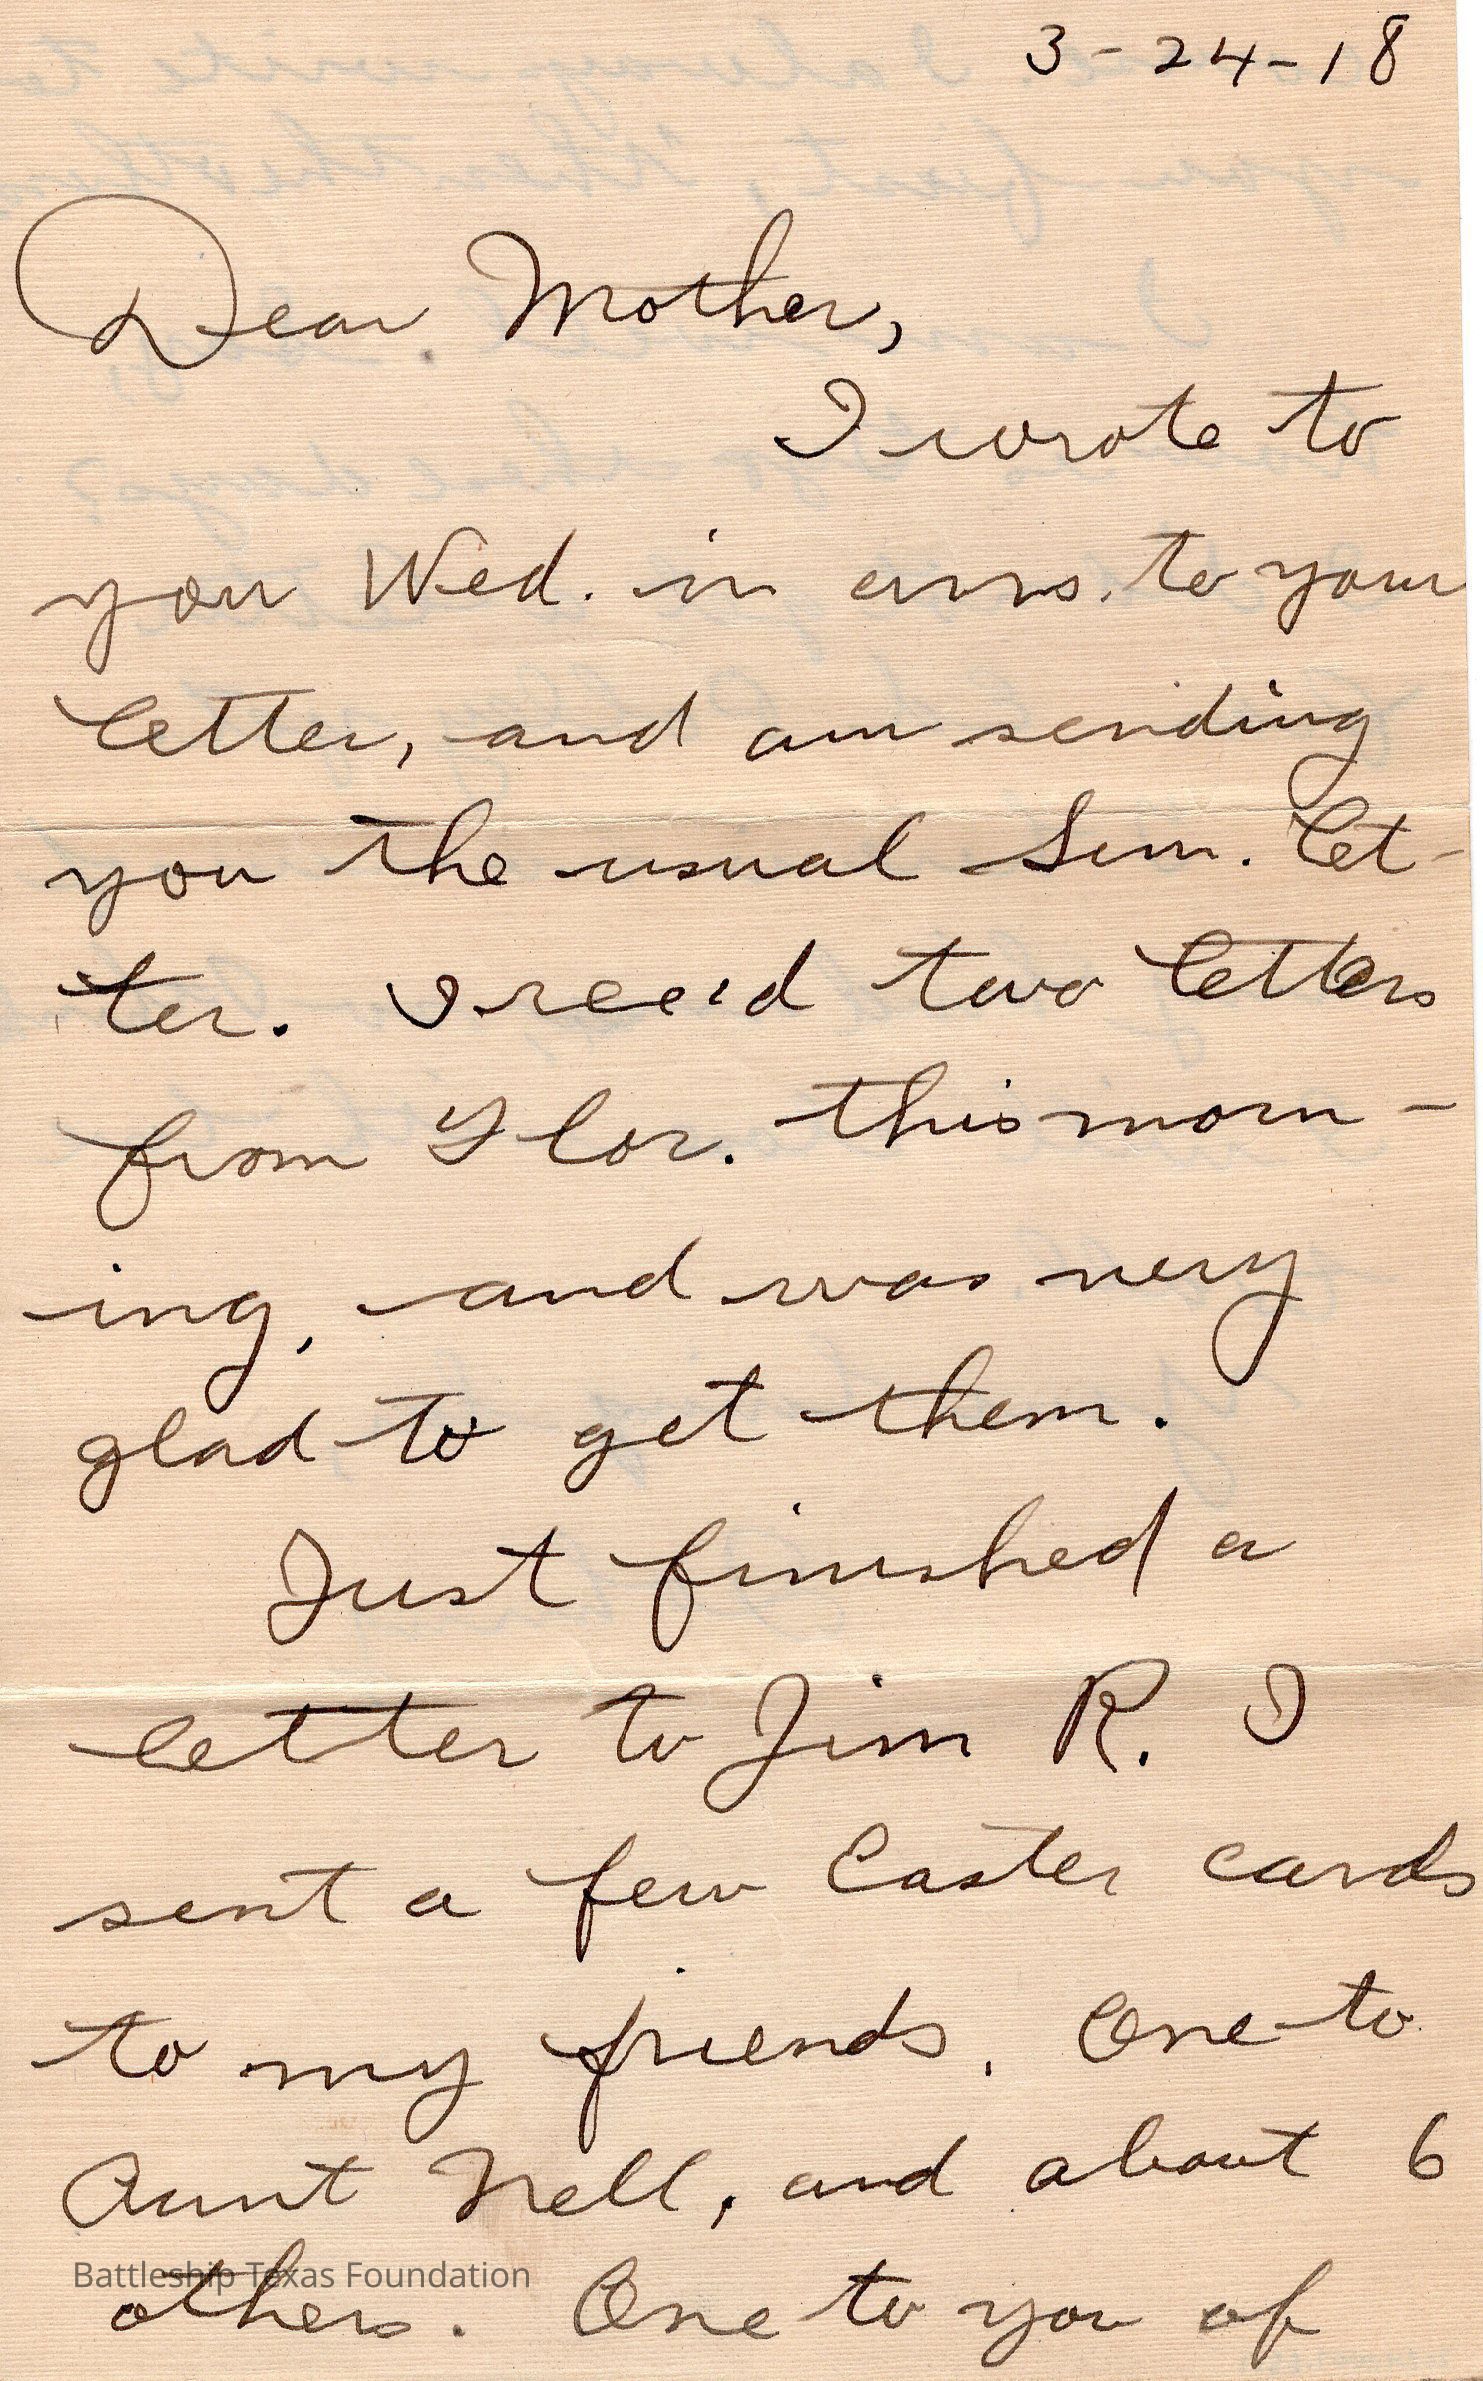 3-24-18
Dear Mother,
I wrote to
you Wed. in ans. to your
letter, and am sending
you the usual Sun. let-
ter. I rec'd two letters
from Flor. this morn-
ing, and was very
glad to get them.
Just finished a
letter to Jim R. I
sent a few Easter cards
to my friends. One to
Aunt Nell, and about 6
others. One to you of
Battleship Texas Foundation